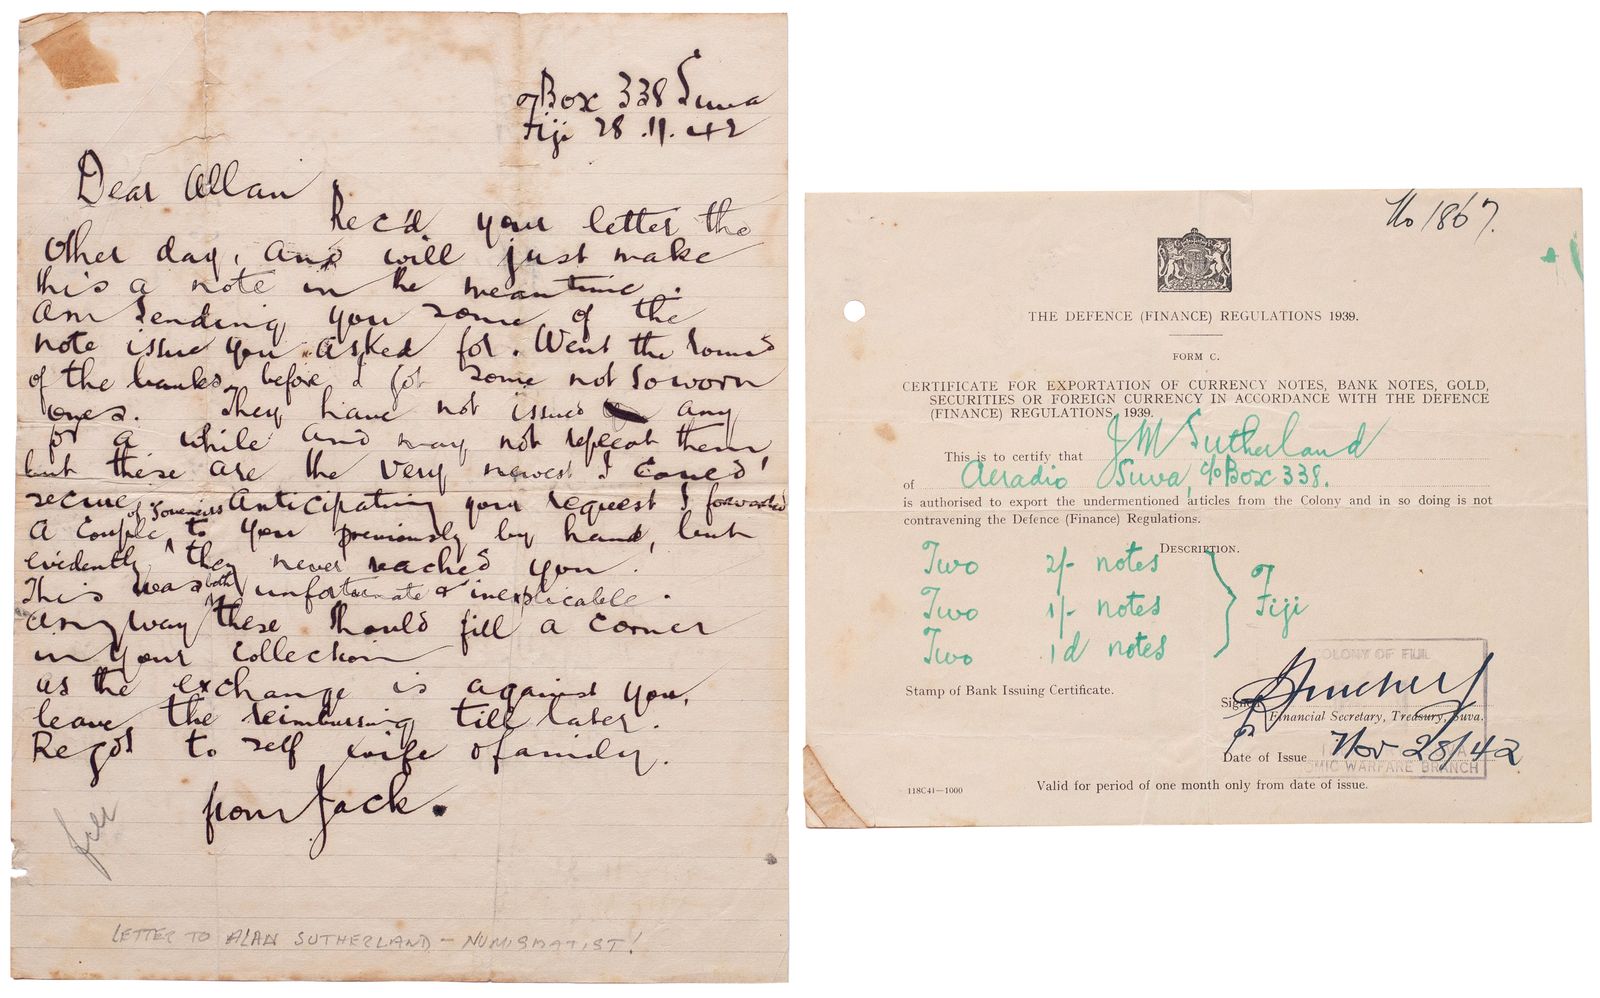 ℅ Box 338 Suva
Fiji 28.11.42
Dear Allan,
Rec'd your letter the
other day, and will just make
this a note in the meantime.
Am sending you some of the
note issue you asked for. Went the rounds
of the banks before I got some not so worn
ones. They have not issued any
for a while and may not repeat them
but these are the very newest I could
secure. Anticipating your request I forwarded
a couple of souvenirs to you previously by hand, but
evidently they never reached you.
This was both unfortunate & inexplicable.
Anyway these should fill a corner
in your collection
As the exchange is against you,
leave the reimbursing till later.
Regds to self wife & family.
from Jack.
file
LETTER TO ALAN SUTHERLAND - NUMISMATIST!
No 1867.
THE DEFENCE (FINANCE) REGULATIONS 1939.
FORM C.
CERTIFICATE FOR EXPORTATION OF CURRENCY NOTES, BANK NOTES, GOLD,
SECURITIES OR FOREIGN CURRENCY IN ACCORDANCE WITH THE DEFENCE
(FINANCE) REGULATIONS, 1939.
This is to certify that J M Sutherland
of Aeradio Suva, c/o Box 338.
is authorised to export the undermentioned articles from the Colony and in so doing is not
contravening the Defence (Finance) Regulations.
DESCRIPTION.
Two 2/- notes
Two 1/- notes } of Fiji
Two 1d notes
COLONY OF FIJI.
Stamp of Bank Issuing Certificate.
Signed
for Financial Secretary, Treasury, Suva.
Date of Issue Nov 28/42
WARFARE BRANCH
118C41—1000
Valid for period of one month only from date of issue.